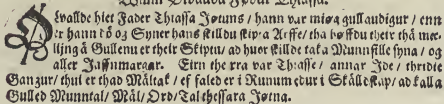 Ølvallde hiet Fader Thiassa Jøtuns / hann var miøg gullaudigur / enn
er hann dö og Syner hans skilldu skipta Arffe / tha hoffdu their thä mæ-
ling ä Gullenu er their Skiptu / ad huor skillde taka Munnfille syna / og
aller Jaffnmargar. Eirn the rra var Thiasse / annar Ide / thridie
Gangur / thui er thad Mältak / ef faled er i Runum edur i Skälldskap / ad kalla
Gulled Munntal / Mäl / Ord / Tal thessara Jøtna.